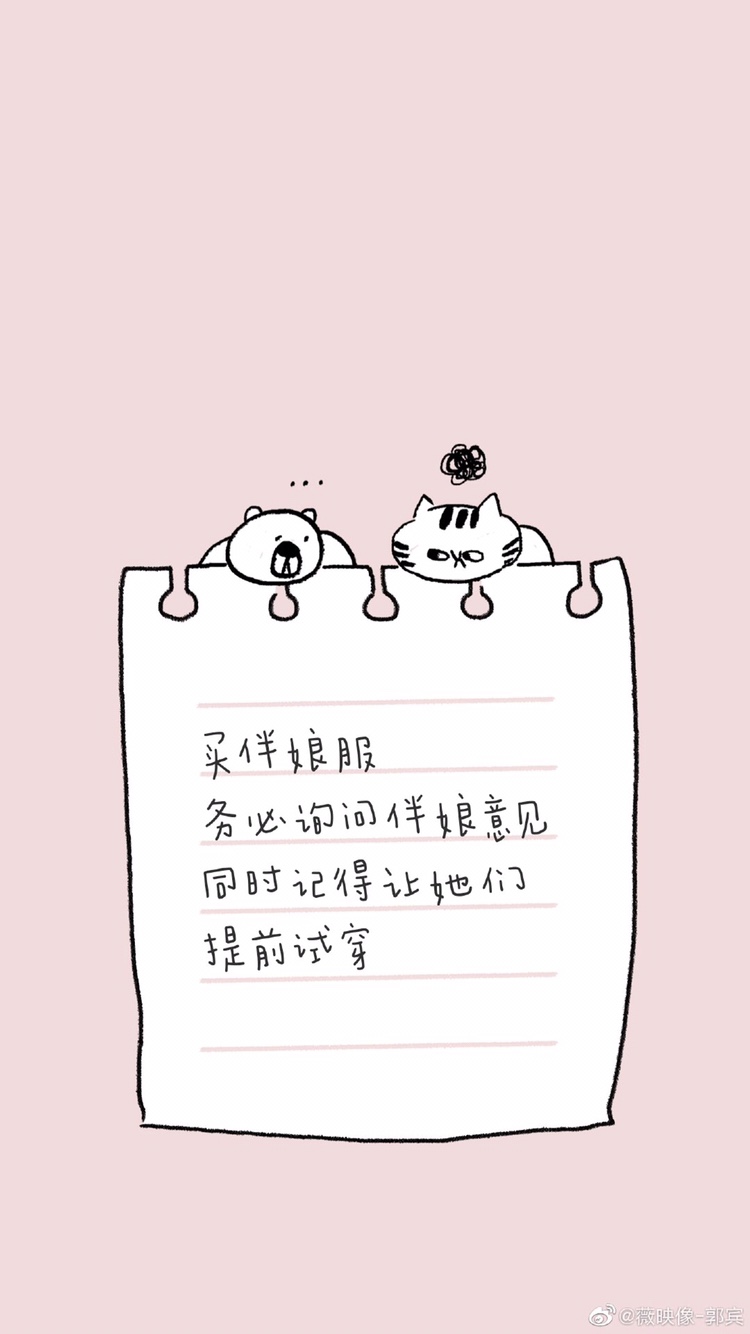 ...
买伴娘服
务必询问伴娘意见
同时记得让她们
提前试穿
@薇映像-郭宾